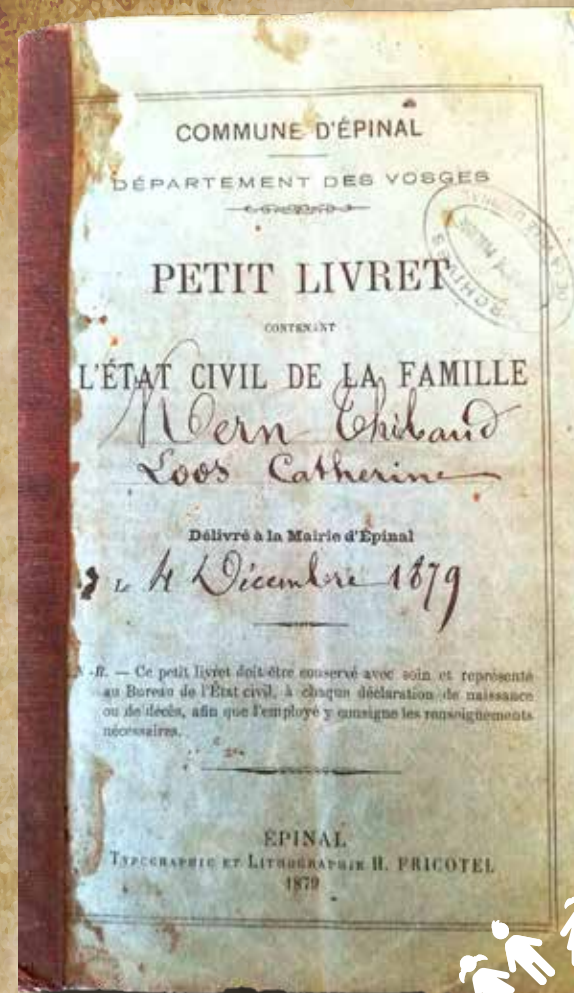 COMMUNE D'ÉPINAL
DÉPARTEMENT DES VOSGES
PETIT LIVRET
CONTENANT
L'ÉTAT CIVIL DE LA FAMILLE
Kern Thibaud
Loos Catherine
Délivré à la Mairie d'Épinal
Le 4 Décembre 1879
-B. — Ce petit livret doit être conservé avec soin et représenté
au Bureau de l'État civil, à chaque déclaration de naissance
ou de décès, afin que l'employé y consigne les renseignements
nécessaires.
ÉPINAL
TYPOGRAPHIE ET LITHOGRAPHIE H. FRICOTEL
1879
ARCHIVES